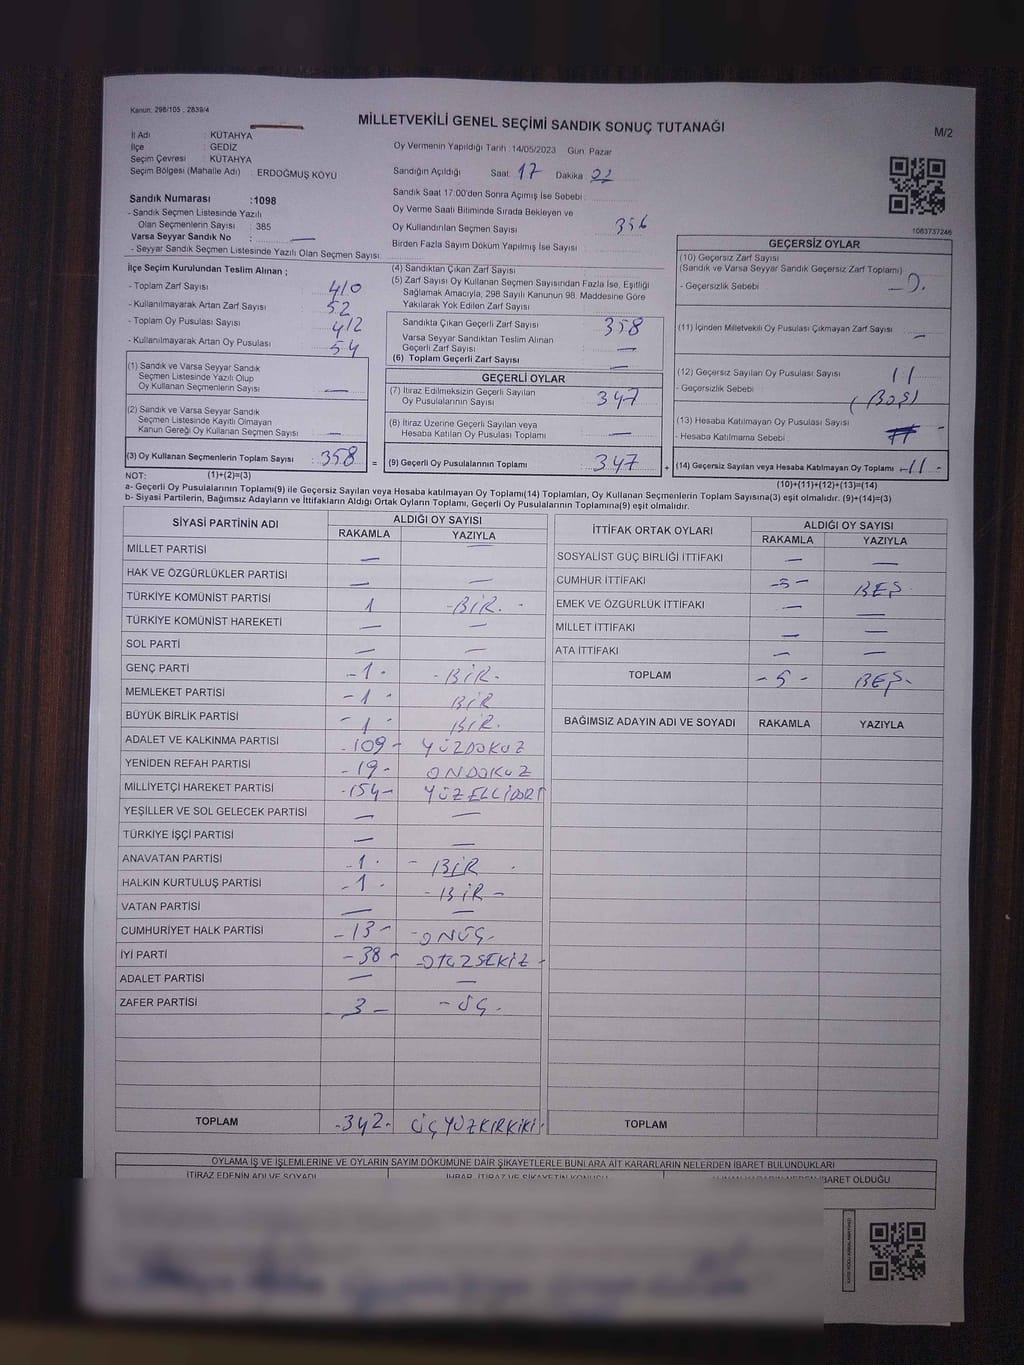 Kanun: 298/105 , 2839/4
MİLLETVEKİLİ GENEL SEÇİMİ SANDIK SONUÇ TUTANAĞI
M/2
İl Adı : KÜTAHYA
İlçe : GEDİZ
Seçim Çevresi : KÜTAHYA
Seçim Bölgesi (Mahalle Adı) : ERDOĞMUŞ KÖYÜ
Oy Vermenin Yapıldığı Tarih :14/05/2023 Gün: Pazar
Sandığın Açıldığı Saat: 17 Dakika
Sandık Saat 17:00'den Sonra Açımış İse Sebebi :
Oy Verme Saati Bitiminde Sırada Bekleyen ve
Oy Kullandırılan Seçmen Sayısı : 356
Birden Fazla Sayım Döküm Yapılmış İse Sayısı :
Sandık Numarası :1098
- Sandık Seçmen Listesinde Yazılı
Olan Seçmenlerin Sayısı : 385
Varsa Seyyar Sandık No : —
- Seyyar Sandık Seçmen Listesinde Yazılı Olan Seçmen Sayısı:
1083737246
İlçe Seçim Kurulundan Teslim Alınan ;
- Toplam Zarf Sayısı : 410
- Kullanılmayarak Artan Zarf Sayısı : 52
- Toplam Oy Pusulası Sayısı : 412
- Kullanılmayarak Artan Oy Pusulası : 54
(1) Sandık ve Varsa Seyyar Sandık
Seçmen Listesinde Yazılı Olup
Oy Kullanan Seçmenlerin Sayısı : —
(2) Sandık ve Varsa Seyyar Sandık
Seçmen Listesinde Kayıtlı Olmayan
Kanun Gereği Oy Kullanan Seçmen Sayısı : —
(3) Oy Kullanan Seçmenlerin Toplam Sayısı : 358 =
(4) Sandıktan Çıkan Zarf Sayısı :
(5) Zarf Sayısı Oy Kullanan Seçmen Sayısından Fazla İse, Eşitliği
Sağlamak Amacıyla, 298 Sayılı Kanunun 98. Maddesine Göre
Yakılarak Yok Edilen Zarf Sayısı :
Sandıkta Çıkan Geçerli Zarf Sayısı : 358
Varsa Seyyar Sandıktan Teslim Alınan
Geçerli Zarf Sayısı : —
(6) Toplam Geçerli Zarf Sayısı : —
GEÇERLİ OYLAR
(7) İtiraz Edilmeksizin Geçerli Sayılan
Oy Pusulalarının Sayısı : 347
(8) İtiraz Üzerine Geçerli Sayılan veya
Hesaba Katılan Oy Pusulası Toplamı : —
(9) Geçerli Oy Pusulalarının Toplamı : 347 +
GEÇERSİZ OYLAR
(10) Geçersiz Zarf Sayısı
(Sandık ve Varsa Seyyar Sandık Geçersiz Zarf Toplamı) :
- Geçersizlik Sebebi : — 0.
(11) İçinden Milletvekili Oy Pusulası Çıkmayan Zarf Sayısı : —
(12) Geçersiz Sayılan Oy Pusulası Sayısı : 11
- Geçersizlik Sebebi : (BOŞ)
(13) Hesaba Katılmayan Oy Pusulası Sayısı :
- Hesaba Katılmama Sebebi : —
(14) Geçersiz Sayılan veya Hesaba Katılmayan Oy Toplamı : -11-
NOT: (1)+(2)=(3)
(10)+(11)+(12)+(13)=(14)
a- Geçerli Oy Pusulalarının Toplamı(9) ile Geçersiz Sayılan veya Hesaba katılmayan Oy Toplamı(14) Toplamları, Oy Kullanan Seçmenlerin Toplam Sayısına(3) eşit olmalıdır. (9)+(14)=(3)
b- Siyasi Partilerin, Bağımsız Adayların ve İttifakların Aldığı Ortak Oyların Toplamı, Geçerli Oy Pusulalarının Toplamına(9) eşit olmalıdır.
SİYASİ PARTİNİN ADI ALDIĞI OY SAYISI
RAKAMLA YAZIYLA
MİLLET PARTİSİ — —
HAK VE ÖZGÜRLÜKLER PARTİSİ — —
TÜRKİYE KOMÜNİST PARTİSİ 1 -BİR.-
TÜRKİYE KOMÜNİST HAREKETİ — —
SOL PARTİ — —
GENÇ PARTİ -1- -BİR-
MEMLEKET PARTİSİ -1- BİR
BÜYÜK BİRLİK PARTİSİ -1- BİR.
ADALET VE KALKINMA PARTİSİ -109- YÜZDOKUZ
YENİDEN REFAH PARTİSİ -19- ONDOKUZ
MİLLİYETÇİ HAREKET PARTİSİ -154- YÜZELLİDÖRT
YEŞİLLER VE SOL GELECEK PARTİSİ — —
TÜRKİYE İŞÇİ PARTİSİ — —
ANAVATAN PARTİSİ -1- - BİR -
HALKIN KURTULUŞ PARTİSİ -1- -BİR-
VATAN PARTİSİ — —
CUMHURİYET HALK PARTİSİ -13- -ONÜÇ-
İYİ PARTİ -38- -OTUZSEKİZ-
ADALET PARTİSİ — —
ZAFER PARTİSİ -3- -ÜÇ-
TOPLAM -342- ÜÇYÜZKIRKİKİ
İTTİFAK ORTAK OYLARI ALDIĞI OY SAYISI
RAKAMLA YAZIYLA
SOSYALİST GÜÇ BİRLİĞİ İTTİFAKI — —
CUMHUR İTTİFAKI -5- BEŞ.
EMEK VE ÖZGÜRLÜK İTTİFAKI — —
MİLLET İTTİFAKI — —
ATA İTTİFAKI — —
TOPLAM -5- BEŞ-
BAĞIMSIZ ADAYIN ADI VE SOYADI RAKAMLA YAZIYLA
TOPLAM
OYLAMA İŞ VE İŞLEMLERİNE VE OYLARIN SAYIM DÖKÜMÜNE DAİR ŞİKAYETLERLE BUNLARA AİT KARARLARIN NELERDEN İBARET BULUNDUKLARI
İTİRAZ EDENİN ADI VE SOYADI İHBAR, İTİRAZ VE ŞİKAYETİN KONUSU İBARET OLDUĞU